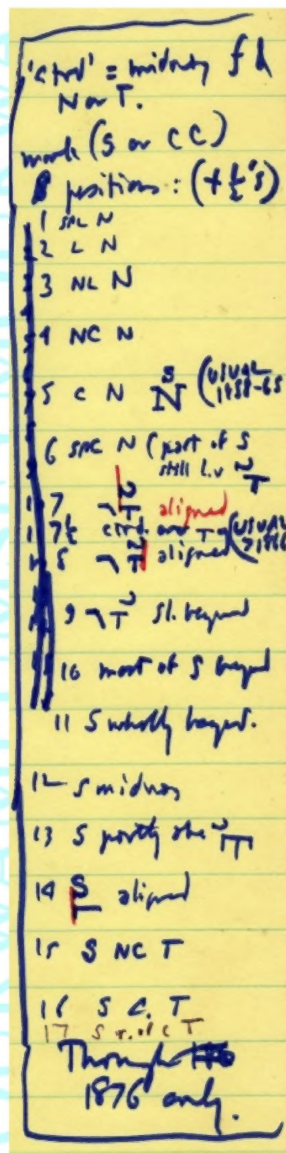 'ctrd' = midway f d
N or T.
mark (S or CC)
8 positions: (+ ½'s)
1 SRL N
2 L N
3 NL N
4 NC N
5 C N S N (USUAL 1858-65
6 SRC N (part of S
still L.v T
7 T aligned
7½ ctrd. over T (USUAL
8 T aligned
9 T sl. beyond
10 most of S beyond
11 S wholly beyond.
12 S midway
13 S partly over T
14 S T aligned
15 S NC T
16 S C. T
17 S r. of C T
Through
1876 only.